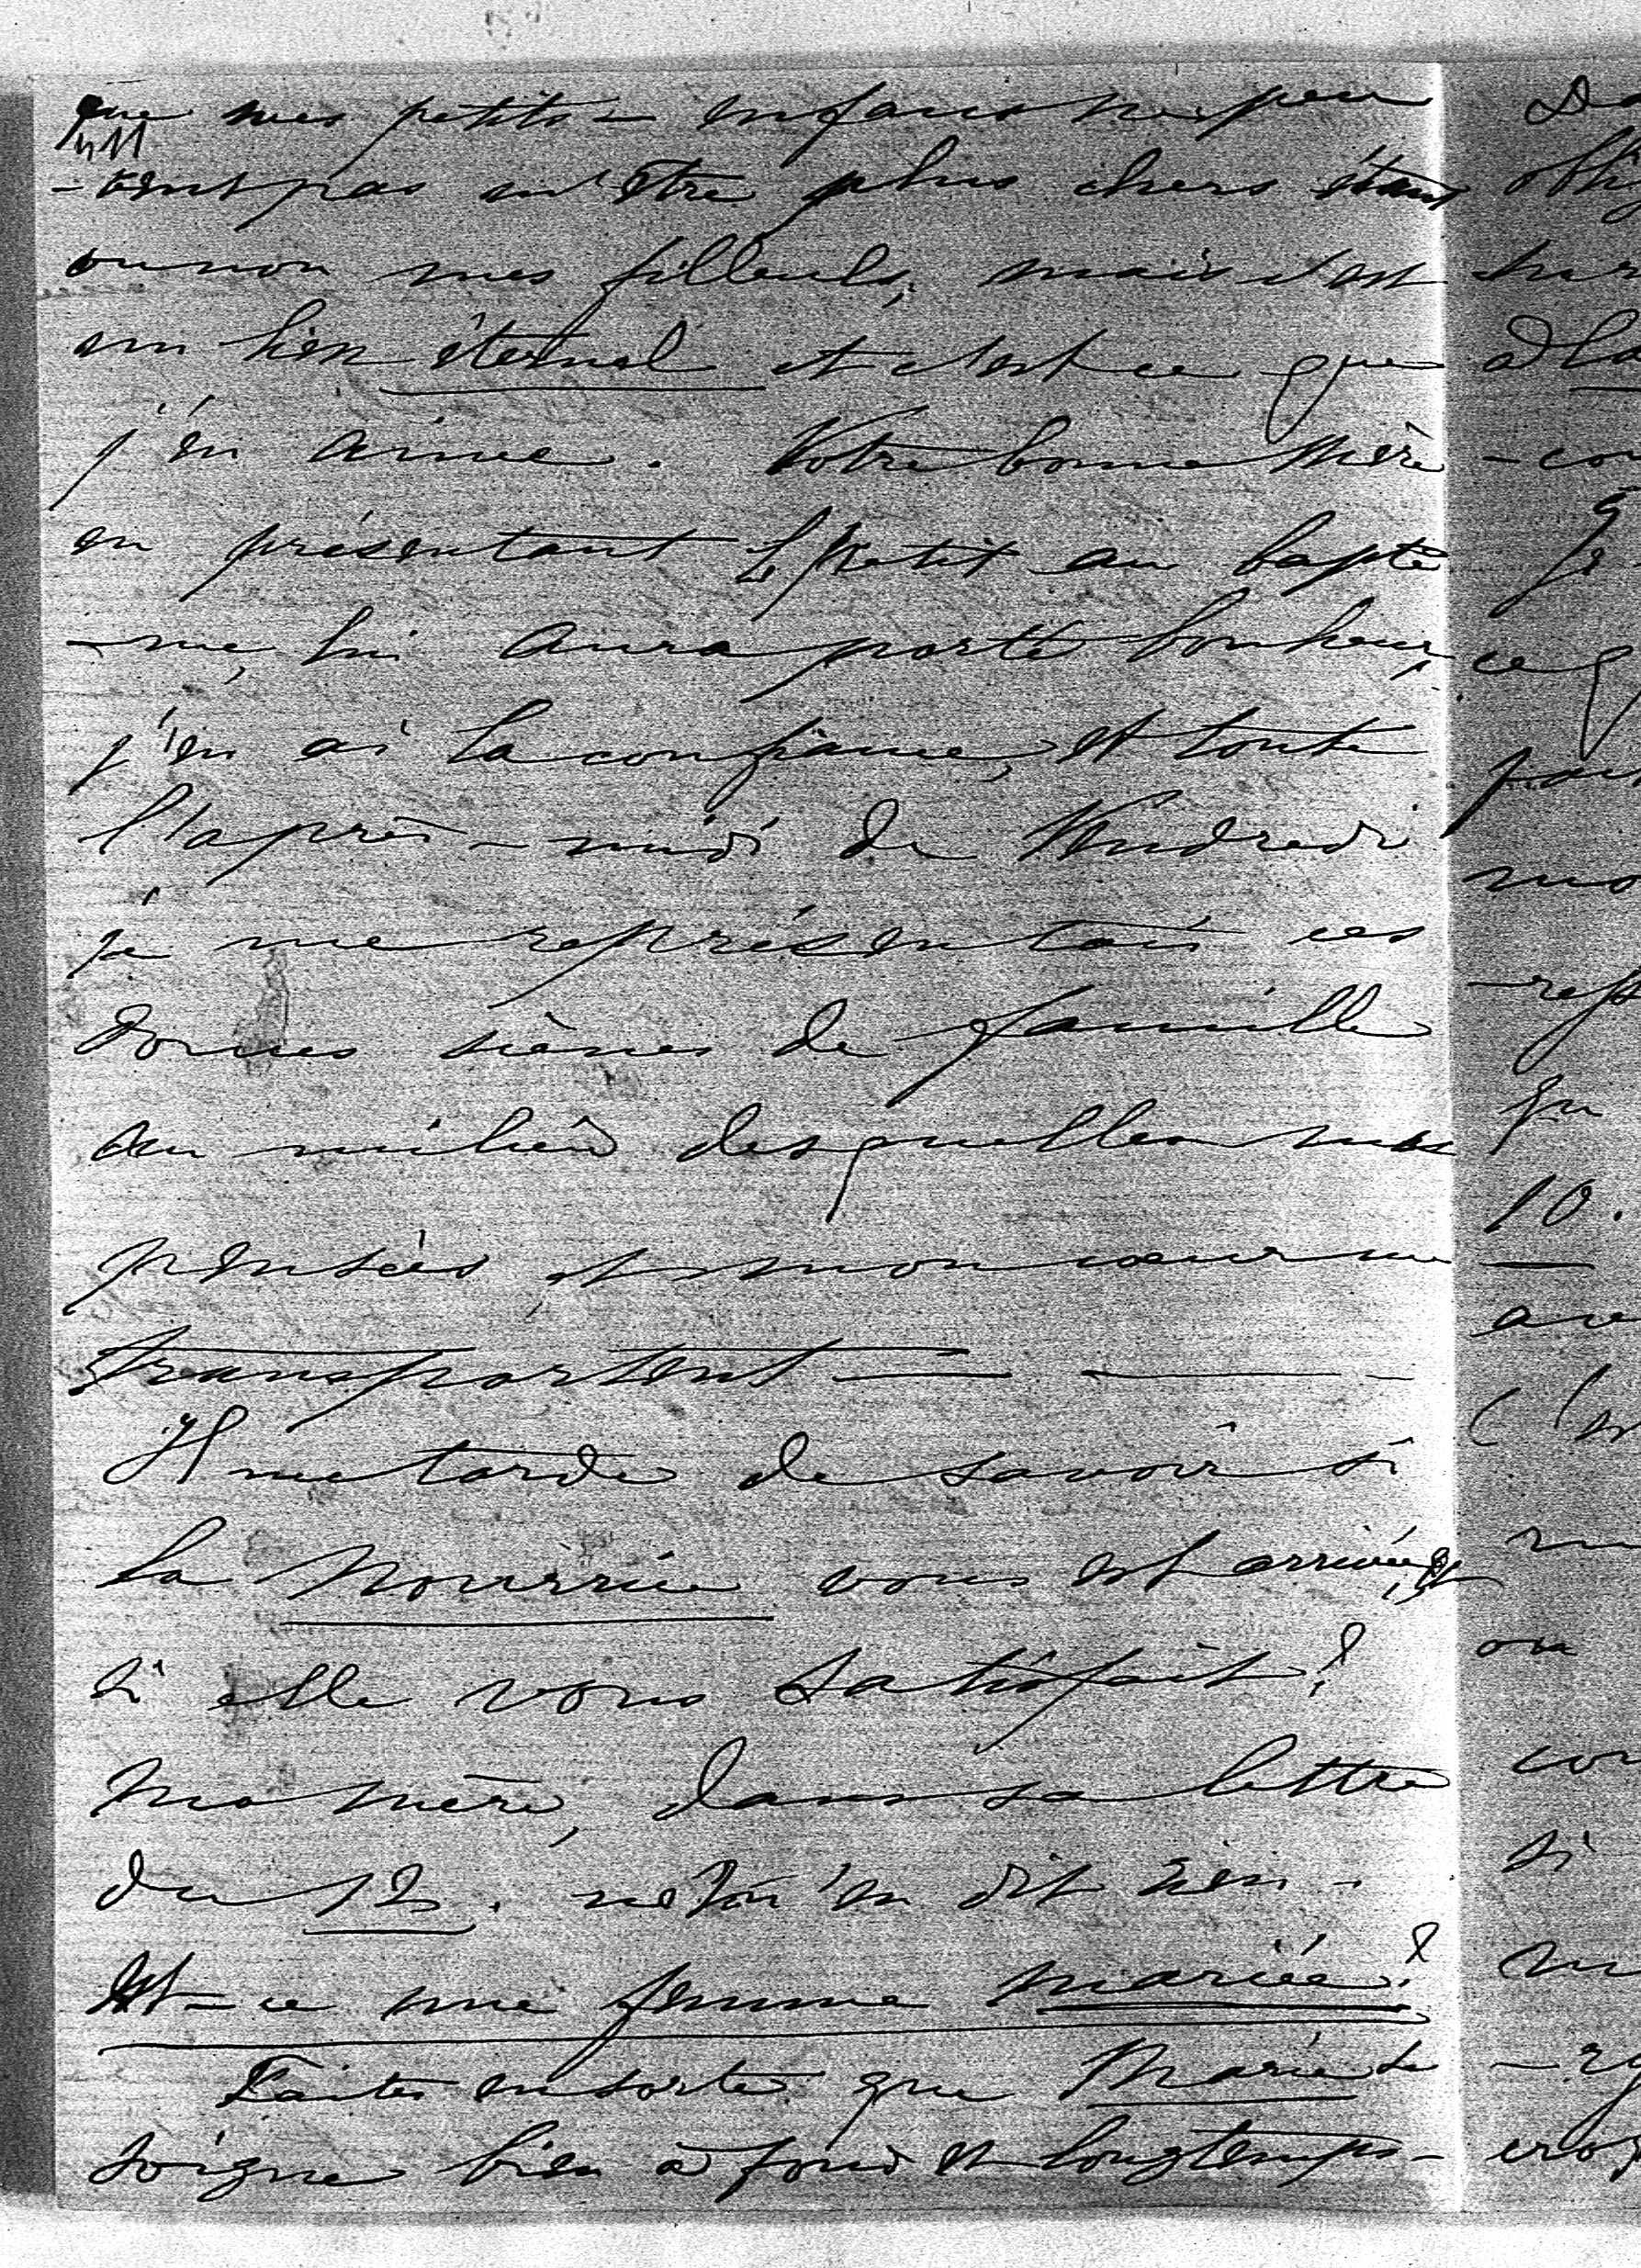 que mes petits-enfans ne peu
411
-vent pas m'être plus chers étant
ou non mes filleuls, mais c'est
un lien éternel et c'est ce que
j'en aime. Votre bonne Mère
en présentant le petit au baptê
-me, lui aura porté bonheur,
j'en ai la confiance, et toute
l'après-midi de Vendredi
je me représentais ces
bonnes scènes de famille
au milieu desquelles mes
pensées et mon cœur me
transportent — —
Il me tarde de savoir si
la Nourrice vous est arrivée, et
si elle vous satisfait?
Ma mère, dans sa lettre
du 12. ne m'en dit rien -
Est-ce une femme mariée?
Faites en sorte que Marie se
soigne bien à fond et longtemps -